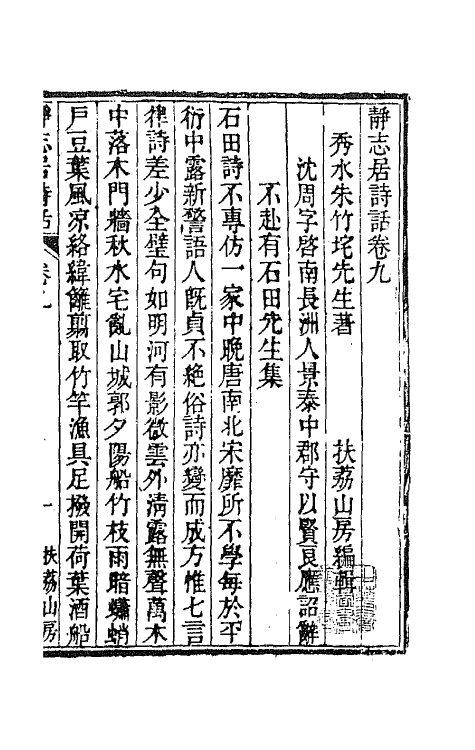 靜志居詩話卷九
秀水朱竹垞先生著　扶荔山房編輯
沈周字啓南長洲人景泰中郡守以賢良應詔辭
不赴有石田先生集
石田詩不專仿一家中晚唐南北宋靡所不學每於平
衍中露新警語人旣貞不絶俗詩亦變而成方惟七言
律詩差少全璧句如明河有影微雲外淸露無聲萬木
中落木門牆秋水宅亂山城郭夕陽船竹枝雨暗蠨蛸
戸豆葉風凉絡緯籬翦取竹竿漁具足撥開荷葉酒船
靜志居詩話　卷九　一　扶荔山房